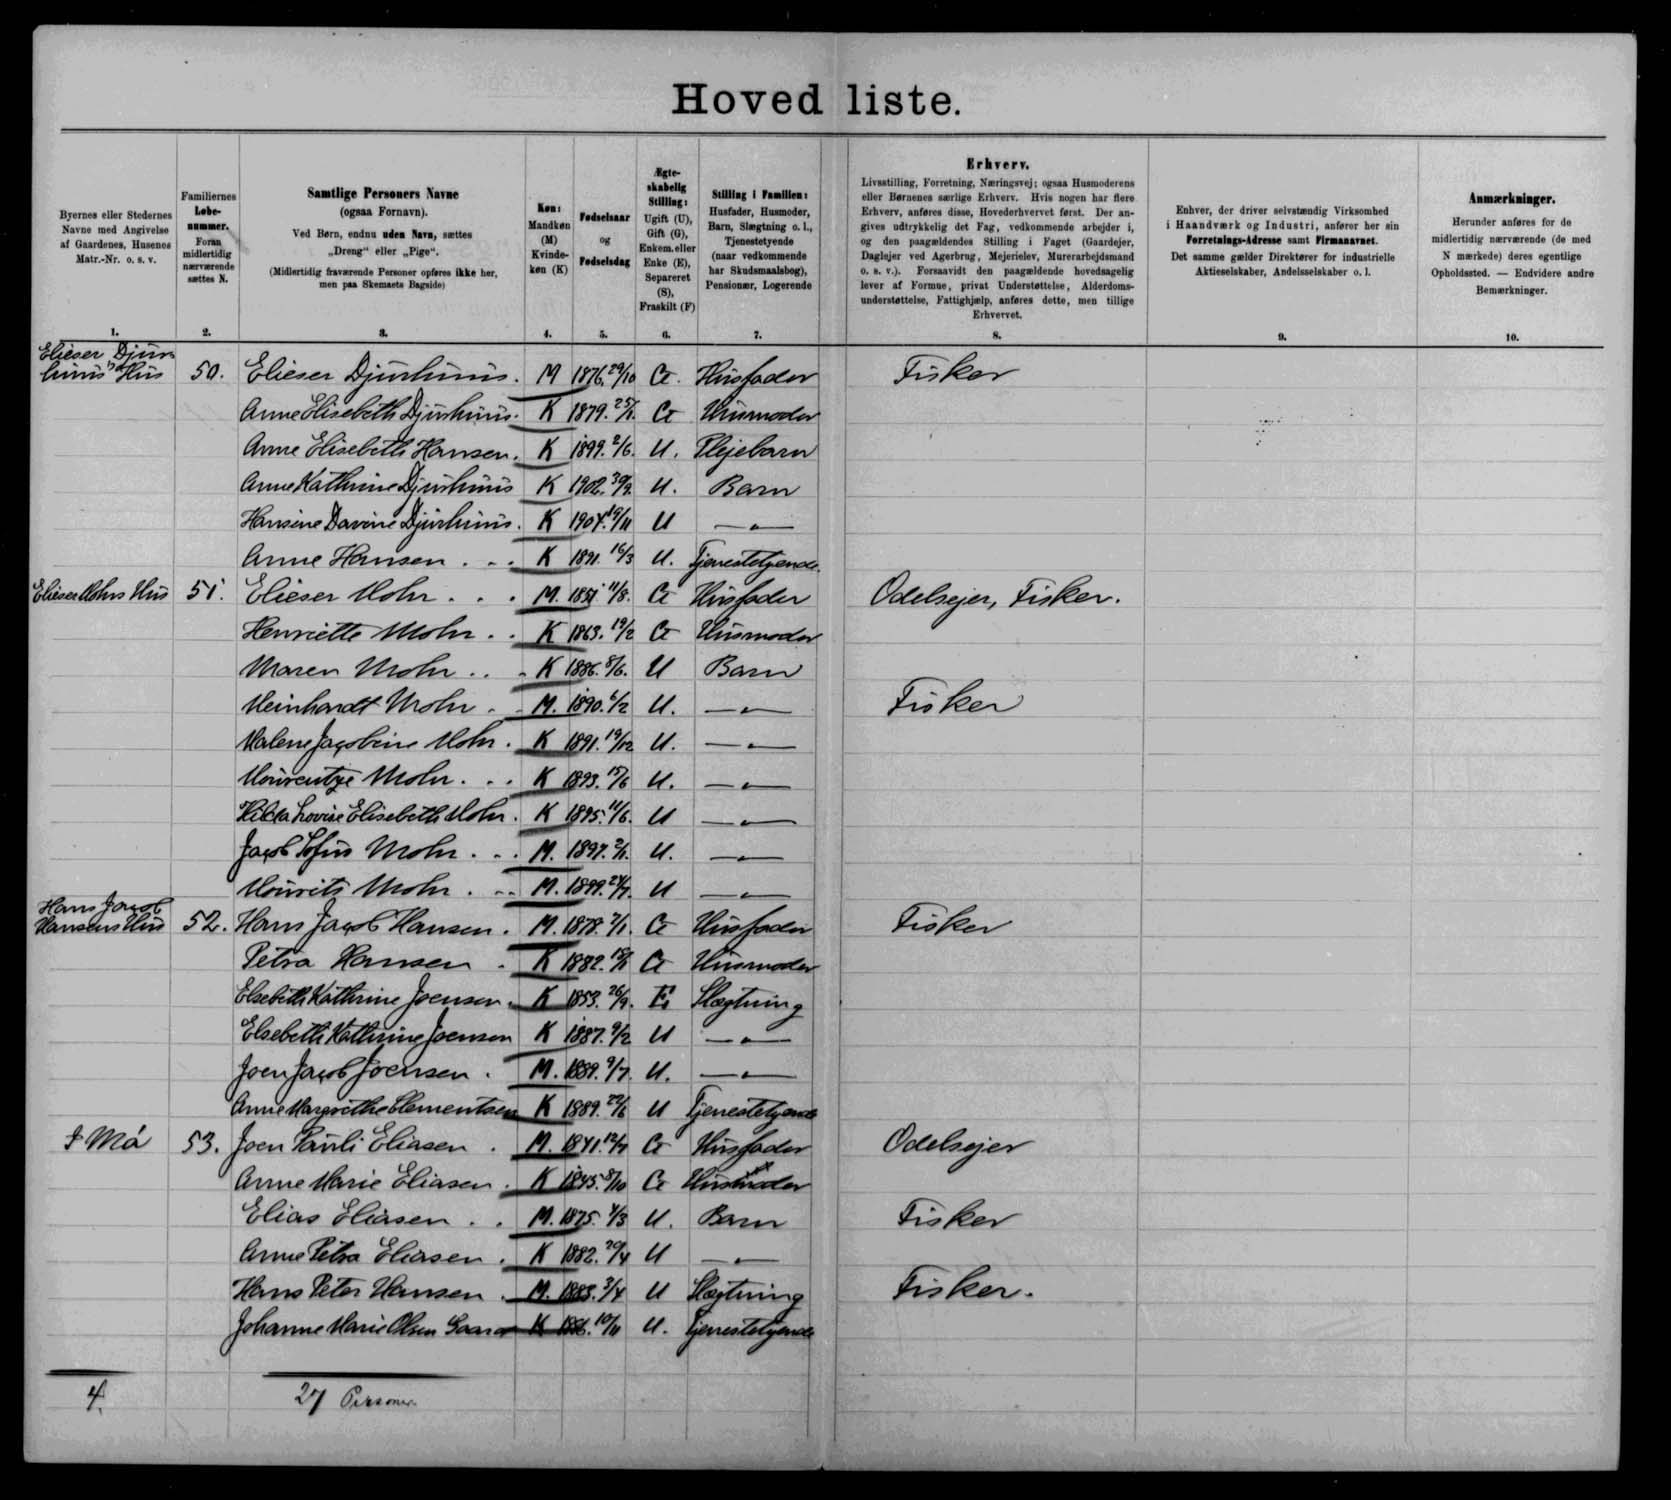 Hoved liste.
Byernes eller Stedernes
Navne med Angivelse
af Gaardenes, Husenes
Matr.-Nr. o. s. v.
1.
Familiernes
Løbe-
nummer.
Foran
midlertidig
nærværende
sættes N.
2.
Samtlige Personers Navne
(ogsaa Fornavn).
Ved Børn, endnu uden Navn, sættes
„Dreng" eller „Pige".
(Midlertidig fraværende Personer opføres ikke her,
men paa Skemaets Bagside)
3.
Køn:
Mandkøn
(M)
Kvinde-
køn (K)
4.
Fødselsaar
og
Fødselsdag
5.
Ægte-
skabelig
Stilling:
Ugift (U),
Gift (G),
Enkem. eller
Enke (E),
Separeret
(S),
Fraskilt (F)
6.
Stilling i Familien:
Husfader, Husmoder,
Barn, Slægtning o. l.,
Tjenestetyende
(naar vedkommende
har Skudsmaalsbog),
Pensionær, Logerende
7.
Erhverv.
Livsstilling, Forretning, Næringsvej; ogsaa Husmoderens
eller Børnenes særlige Erhverv. Hvis nogen har flere
Erhverv, anføres disse, Hovederhvervet først. Der an-
gives udtrykkelig det Fag, vedkommende arbejder i,
og den paagældendes Stilling i Faget (Gaardejer,
Daglejer ved Agerbrug, Mejerielev, Murerarbejdsmand
o. s. v.). Forsaavidt den paagældende hovedsagelig
lever af Formue, privat Understøttelse, Alderdoms-
understøttelse, Fattighjælp, anføres dette, men tillige
Erhvervet.
8.
Enhver, der driver selvstændig Virksomhed
i Haandværk og Industri, anfører her sin
Forretnings-Adresse samt Firmanavnet.
Det samme gælder Direktører for industrielle
Aktieselskaber, Andelsselskaber o. l.
9.
Anmærkninger.
Herunder anføres for de
midlertidig nærværende (de med
N mærkede) deres egentlige
Opholdssted. — Endvidere andre
Bemærkninger.
10.
Elieser Djur-
huus' Hus 50. Elieser Djurhuus. M 1876. 29/10 G. Husfader Fisker
Anne Elisebeth Djurhuus. K 1879. 25/1. G Husmoder
Anne Elisebeth Hansen. K 1899. 2/6. U. Plejebarn
Anne Kathrine Djurhuus K 1902. 30/9. U. Barn
Hansine Davine Djurhuus. K 1904. 19/11 U — " —
Anne Hansen . . . K 1891. 16/3 U. Tjenestetyende.
Elieser Mohrs Hus 51. Elieser Mohr . . . M. 1851. 11/8. G Husfader Odelsejer, Fisker.
Henriette Mohr . . K 1863. 19/2 G Husmoder
Maren Mohr . . . K 1886. 8/6. U Barn
Meinhardt Mohr . . M. 1890. 6/2 U. — " — Fisker
Malene Jacobine Mohr . K 1891. 19/12 U. — " —
Mourentze Mohr . . . K 1893. 15/6 U. — " —
Hilda Lovise Elisebeth Mohr . K 1895. 11/6. U — " —
Jacob Sofus Mohr . . . M. 1897. 2/1. U. — " —
Mourits Mohr . . . M. 1899. 24/7. U — " —
Hans Jacob
Hansens Hus 52. Hans Jacob Hansen . M. 1878. 7/1. G Husfader Fisker
Petra Hansen . K 1882. G Husmoder
Elsebeth Kathrine Joensen . K 1853. 26/9. E Slægtning
Elsebeth Kathrine Joensen K 1887. 9/2 U — " —
Joen Jacob Joensen . M. 1889. 9/7. U. — " —
Anne Margrethe Clementsen K 1889. 22/6 U Tjenestetyende
I Má 53. Joen Pauli Eliasen . M. 1841. 12/7 G Husfader Odelsejer
Anne Marie Eliasen . K 1845. 8/10 G Husmoder
Elias Eliasen . . M. 1875. 4/3 U. Barn Fisker
Anne Petra Eliasen . K 1882. 20/4 U — " —
Hans Peter Hansen . M. 1883. 3/4 U Slægtning Fisker.
Johanne Marie Olsen Gaard K 1886. 10/11 U. Tjenestetyende
4. 27 Personer.